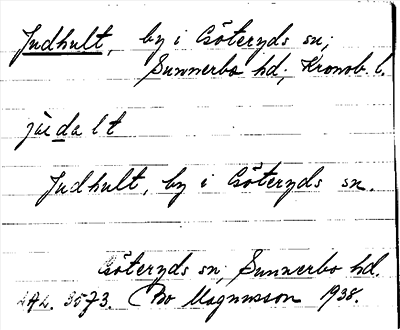 Judhult, by i Göteryds sn,
Sunnerbo hd, Kronob. l.
jo̊dalt
Judhult, by i Göteryds sn.
Göteryds sn, Sunnerbo hd.
ULA. 3573. Bo Magnusson 1938.